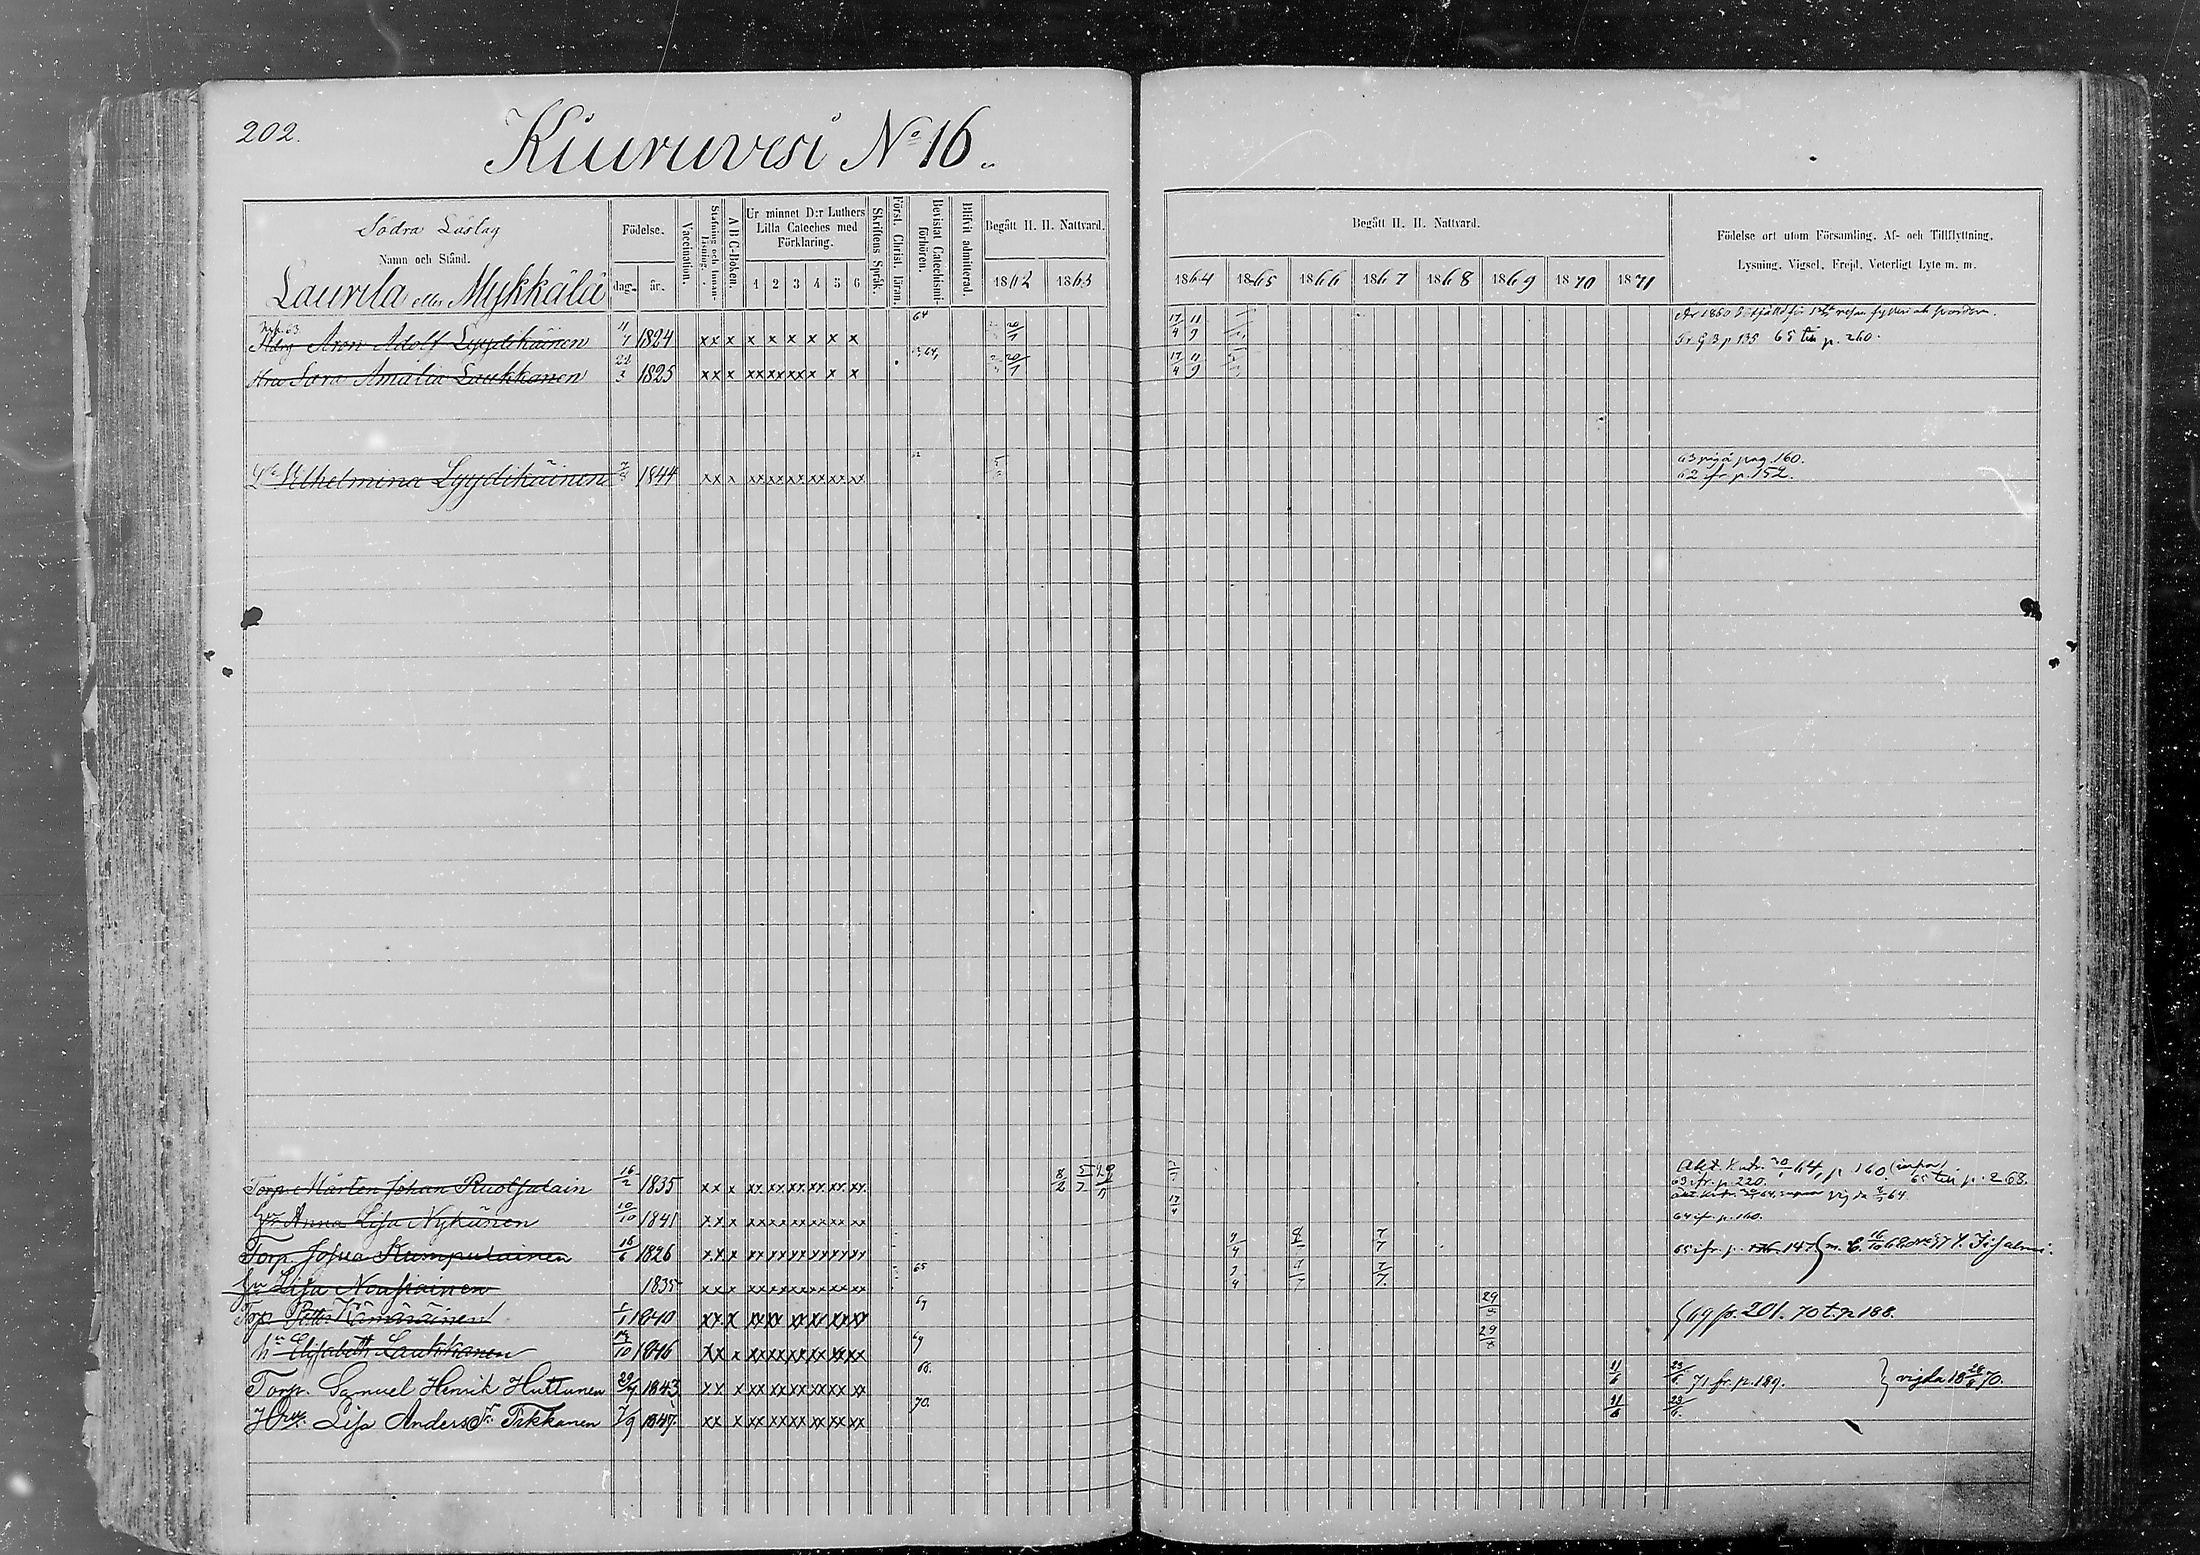 202.
Kiuruvesi No 16.
Södra Läslag
Namn och Stånd.
Laurila eller Mykkälä
Födelse.
dag. år.
Vaccination.
Stafning och Innanläsning.
A B C-Boken.
Ur minnet D:r Luthers Lilla Cateches med Förklaring.
1 2 3 4 5 6
Skriftens Språk.
Först. Christ. läran.
Bevistat Catechismiförhören.
Blifvit admitterad.
Begått H. H. Nattvard.
1862 1863
Begått H. H. Nattvard.
1864 1865 1866 1867 1868 1869 1870 1871
Födelse ort utom Församling. Af- och Tillflyttning.
Lysning, Vigsel, Frejd, Veterligt Lyte m. m.
Aron Adolf Lyydikäinen 11/7 1824 x x x x x x x x x 64 20/1 17/4 11/9
p 135 65 till p. 260.
Hru Sara Amalia Laukkanen 24/3 1825 xx x xx xx xx x x x 64, 20/1 17/4 11/9
Wilhelmina Lyydikäinen 1844 xx x xx xx xx xx xx xx
63 pigå pag. 160.
62 fr p. 152.
Torp. Mårten Johan Ruotsalain 16/2 1835 xx x xx xx xx xx xx xx 8/2 5/7
64, p 160.
63 ifr. p. 220. 65 till p. 268.
vigda 64
Anna Lisa Nykänen 10/10 1841 xx x xx xx xx xx xx xx 17/4
64 ifr. p. 160.
Torp. Josua Kumpulainen 16/6 1826 xx x xx xx xx xx xx xx 7/7
65 ifr. p. 147
Lisa Nousiainen 1835 xx x xx xx xx xx xx xx 65 7/7.
Torp. Pett. Kämäräinen 1840 xx x xx xx xx xx xx xx 29
69 fr. 201. 70 t. p 188.
Elisabeth Laukkanen 1846 xx x xx xx xx xx xx xx 69 29
Torp. Samuel Henrik Huttunen 29/4 1843 xx x xx xx xx xx xx xx 68. 11/6
71 fr. p. 189. vigda 1870.
Hru. Lisa Andersdr Tikkanen 7/9 1847. xx x xx xx xx xx xx xx 70. 11/6